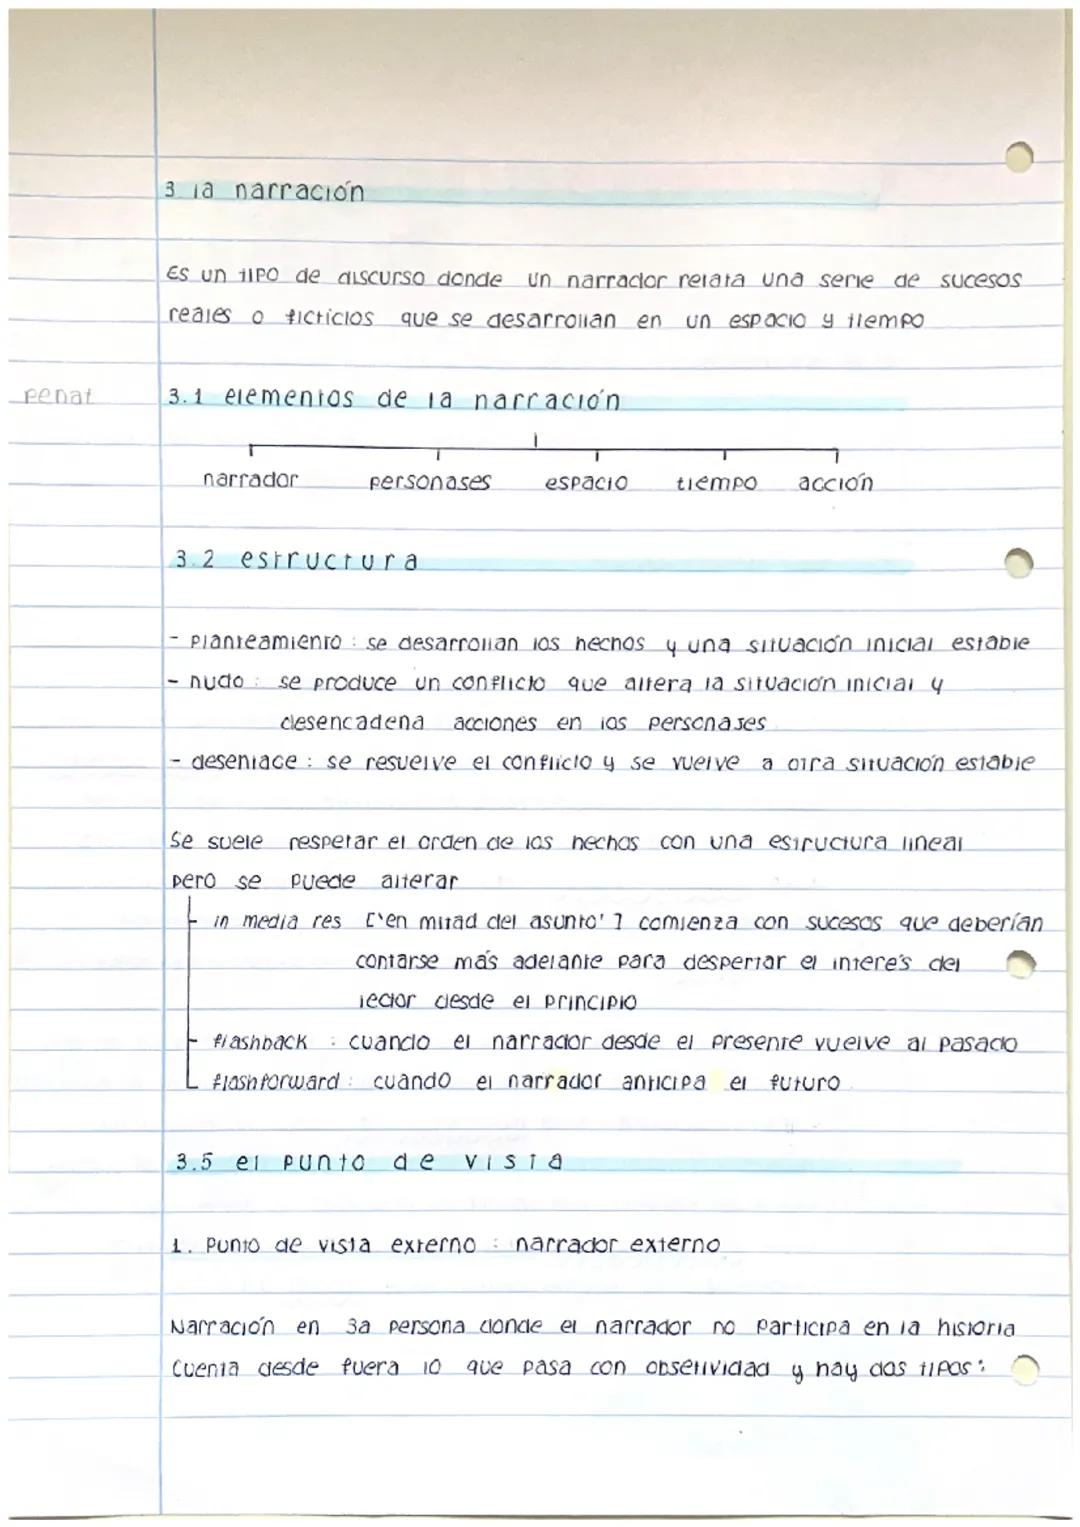 3 la narración
Es un tipo de discurso donde un narrador relata una serie de sucesos
reales o ficticios que se desarrollan en un espacio y tiempo
penat
3.1 elementos de la narración
narrador personajes espacio tiempo acción
3.2 estructura
- Planteamiento : se desarrollan los hechos y una situación inicial estable
- nudo : se produce un conflicto que altera la situación inicial y
desencadena acciones en los personajes
- desenlace : se resuelve el conflicto y se vuelve a otra situación estable
Se suele respetar el orden de los hechos con una estructura lineal
pero se puede alterar
in media res ['en mitad del asunto'] comienza con sucesos que deberían
contarse más adelante para despertar el interés del
lector desde el principio
flashback : cuando el narrador desde el presente vuelve al pasado
flashforward : cuando el narrador anticipa el futuro
3.5 el punto de vista
1. Punto de vista externo : narrador externo
Narración en 3a persona donde el narrador no participa en la historia
Cuenta desde fuera lo que pasa con obsetividad y hay dos tipos :